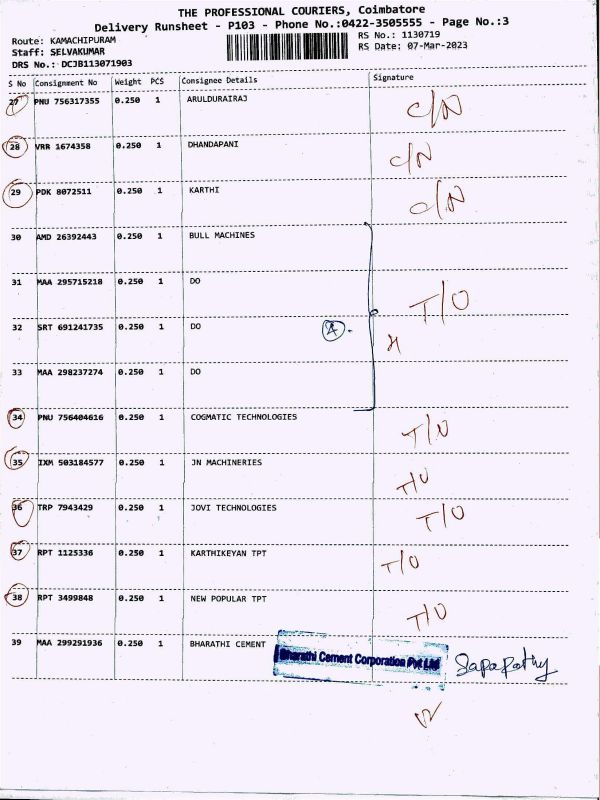 THE PROFESSIONAL COURIERS, Coimbatore
Delivery Runsheet - P103 - Phone No.:0422-3505555 - Page No.:3
Route: KAMACHIPURAM RS No.: 1130719
Staff: SELVAKUMAR RS Date: 07-Mar-2023
DRS No.: DCJB113071903
S No Consignment No Weight PCS Consignee Details Signature
27 PNU 756317355 0.250 1 ARULDURAIRAJ C/N
28 VRR 1674358 0.250 1 DHANDAPANI C/N
29 PDK 8072511 0.250 1 KARTHI C/N
30 AMD 26392443 0.250 1 BULL MACHINES
31 MAA 295715218 0.250 1 DO T/O
32 SRT 691241735 0.250 1 DO 4
33 MAA 298237274 0.250 1 DO
34 PNU 756404616 0.250 1 COGMATIC TECHNOLOGIES T/O
35 IXM 503184577 0.250 1 JN MACHINERIES T/O
36 TRP 7943429 0.250 1 JOVI TECHNOLOGIES T/O
37 RPT 1125336 0.250 1 KARTHIKEYAN TPT T/O
38 RPT 3499848 0.250 1 NEW POPULAR TPT T/O
39 MAA 299291936 0.250 1 BHARATHI CEMENT Bharathi Cement Corporation Pvt Ltd